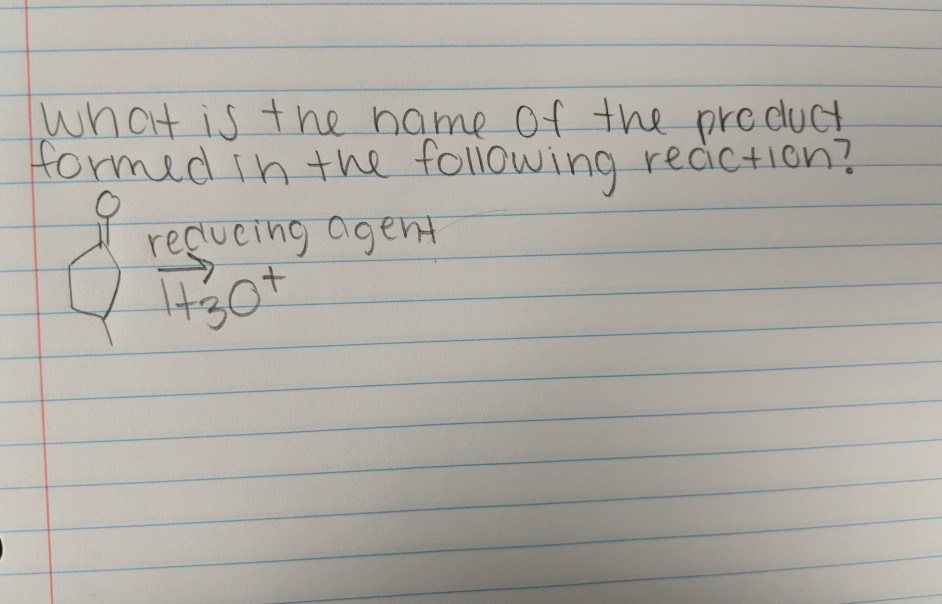 What is the name of the product
formed in the following reaction?
O
reducing agent
H3O+